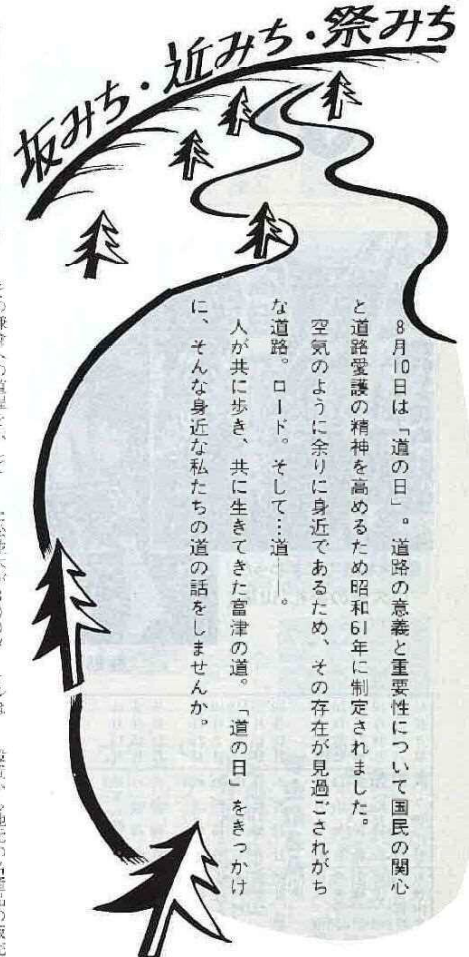 坂みち・近みち・祭みち
8月10日は「道の日」。道路の意義と重要性について国民の関心
と道路愛護の精神を高めるため昭和61年に制定されました。
空気のように余りに身近であるため、その存在が見過ごされがち
な道路。ロード。そして…道——。
人が共に歩き、共に生きてきた富津の道。「道の日」をきっかけ
に、そんな身近な私たちの道の話をしませんか。